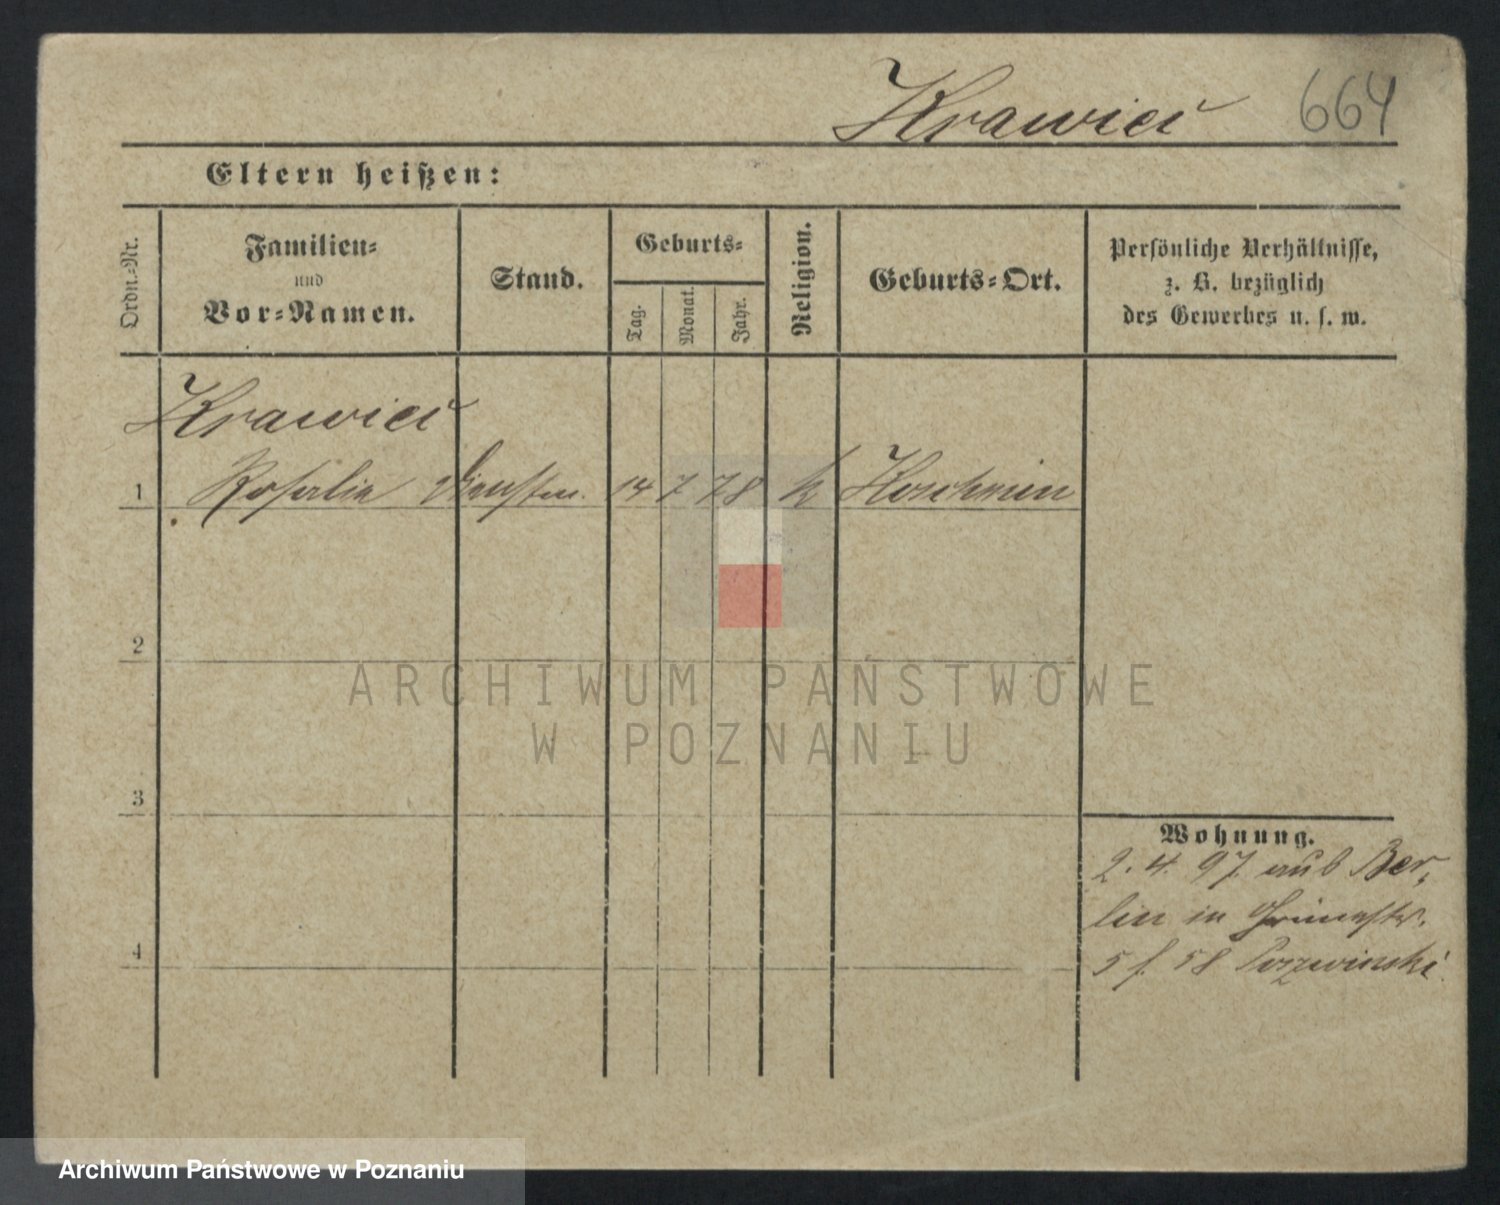 Krawiec 664
Eltern heißen:
Ordn.-Nr.
Familien-
und
Vor-Namen.
Stand.
Geburts-
Tag.
Monat.
Jahr.
Religion.
Geburts-Ort.
Persönliche Verhältnisse,
z. B. bezüglich
des Gewerbes u. s. w.
Krawiec
1 Rosalia Dienstm. 14 7 78 k Koschmin
2
3
4
Wohnung.
2. 4. 97 aus Ber-
lin in
5 f. 58
ARCHIWUM PAŃSTWOWE
W POZNANIU
Archiwum Państwowe w Poznaniu